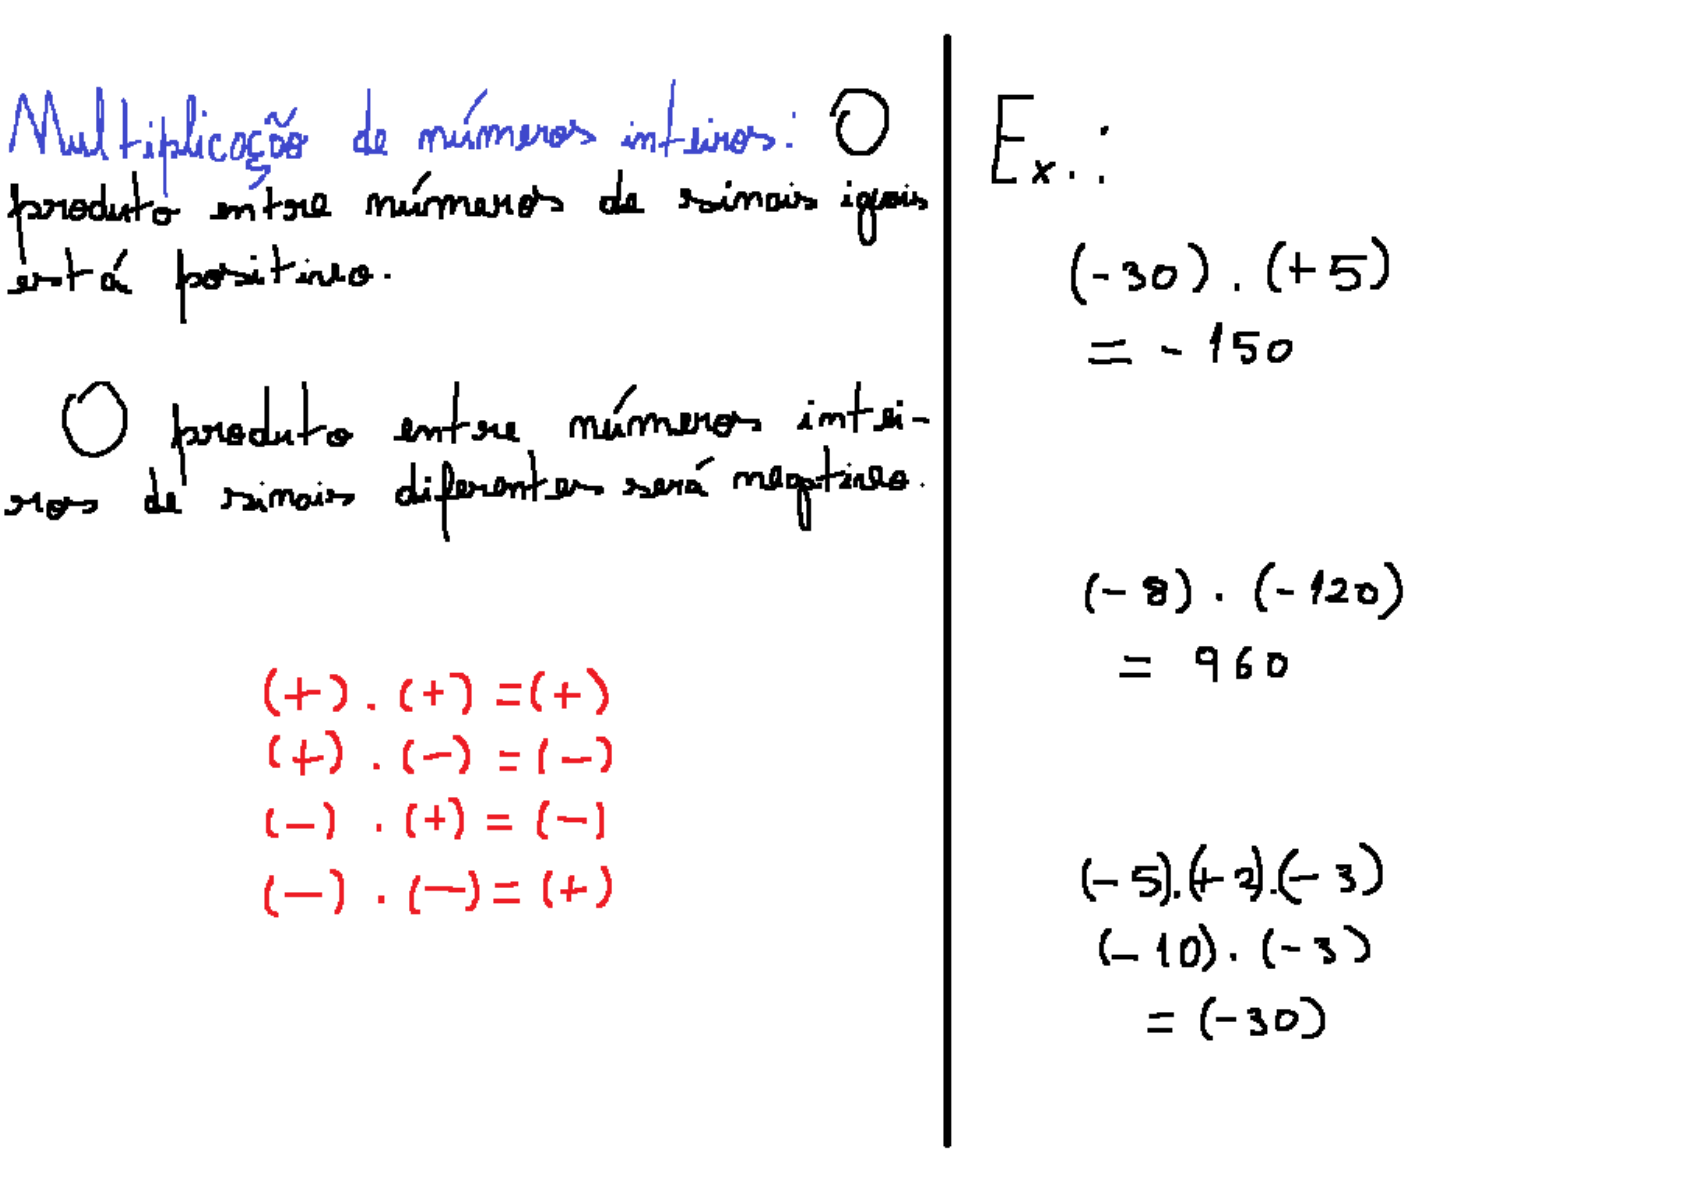 Multiplicação de números inteiros: O
produto entre números de sinais iguais
está positivo.
O produto entre números intei-
ros de sinais diferentes será negativo.
(+) . (+) = (+)
(+) . (-) = (-)
(-) . (+) = (-)
(-) . (-) = (+)
Ex.:
(-30) . (+5)
= - 150
(- 8) . (-120)
= 960
(- 5).(+ 2).(- 3)
(- 10) . (- 3)
= (-30)